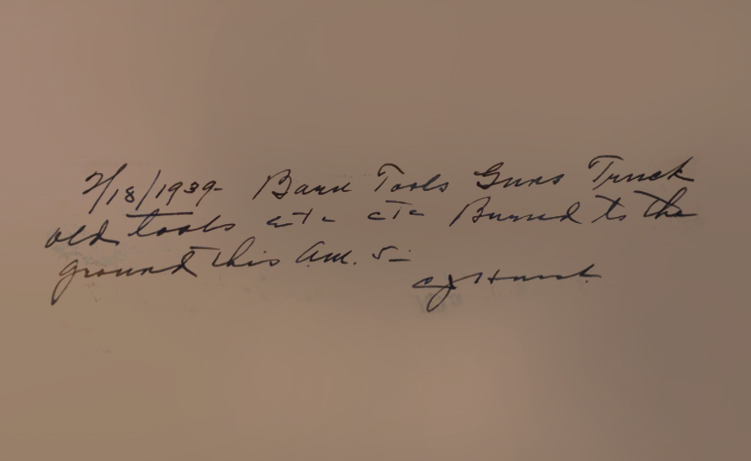 2/18/1939- Barn Tools Guns Truck
old tools etc etc Burned to the
ground this Am. 5-
CJ